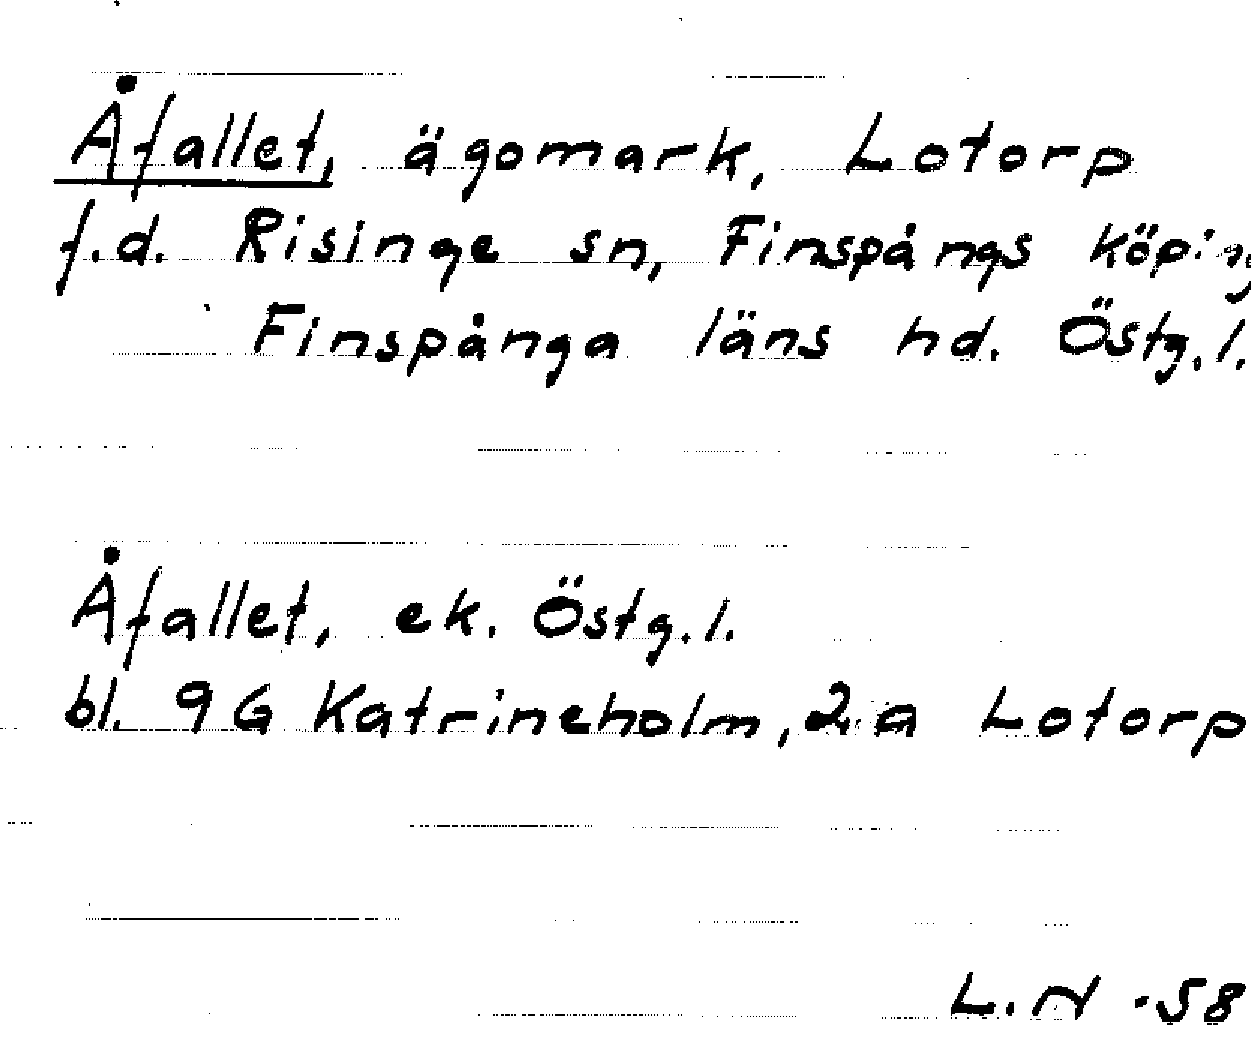 Åfallet, ägomark, Lotorp
f.d. Risinge sn, Finspångs köping
Finspånga läns hd. Östg.l.
Åfallet, ek. Östg.l.
bl. 9G Katrineholm, 2a Lotorp
L.N -58